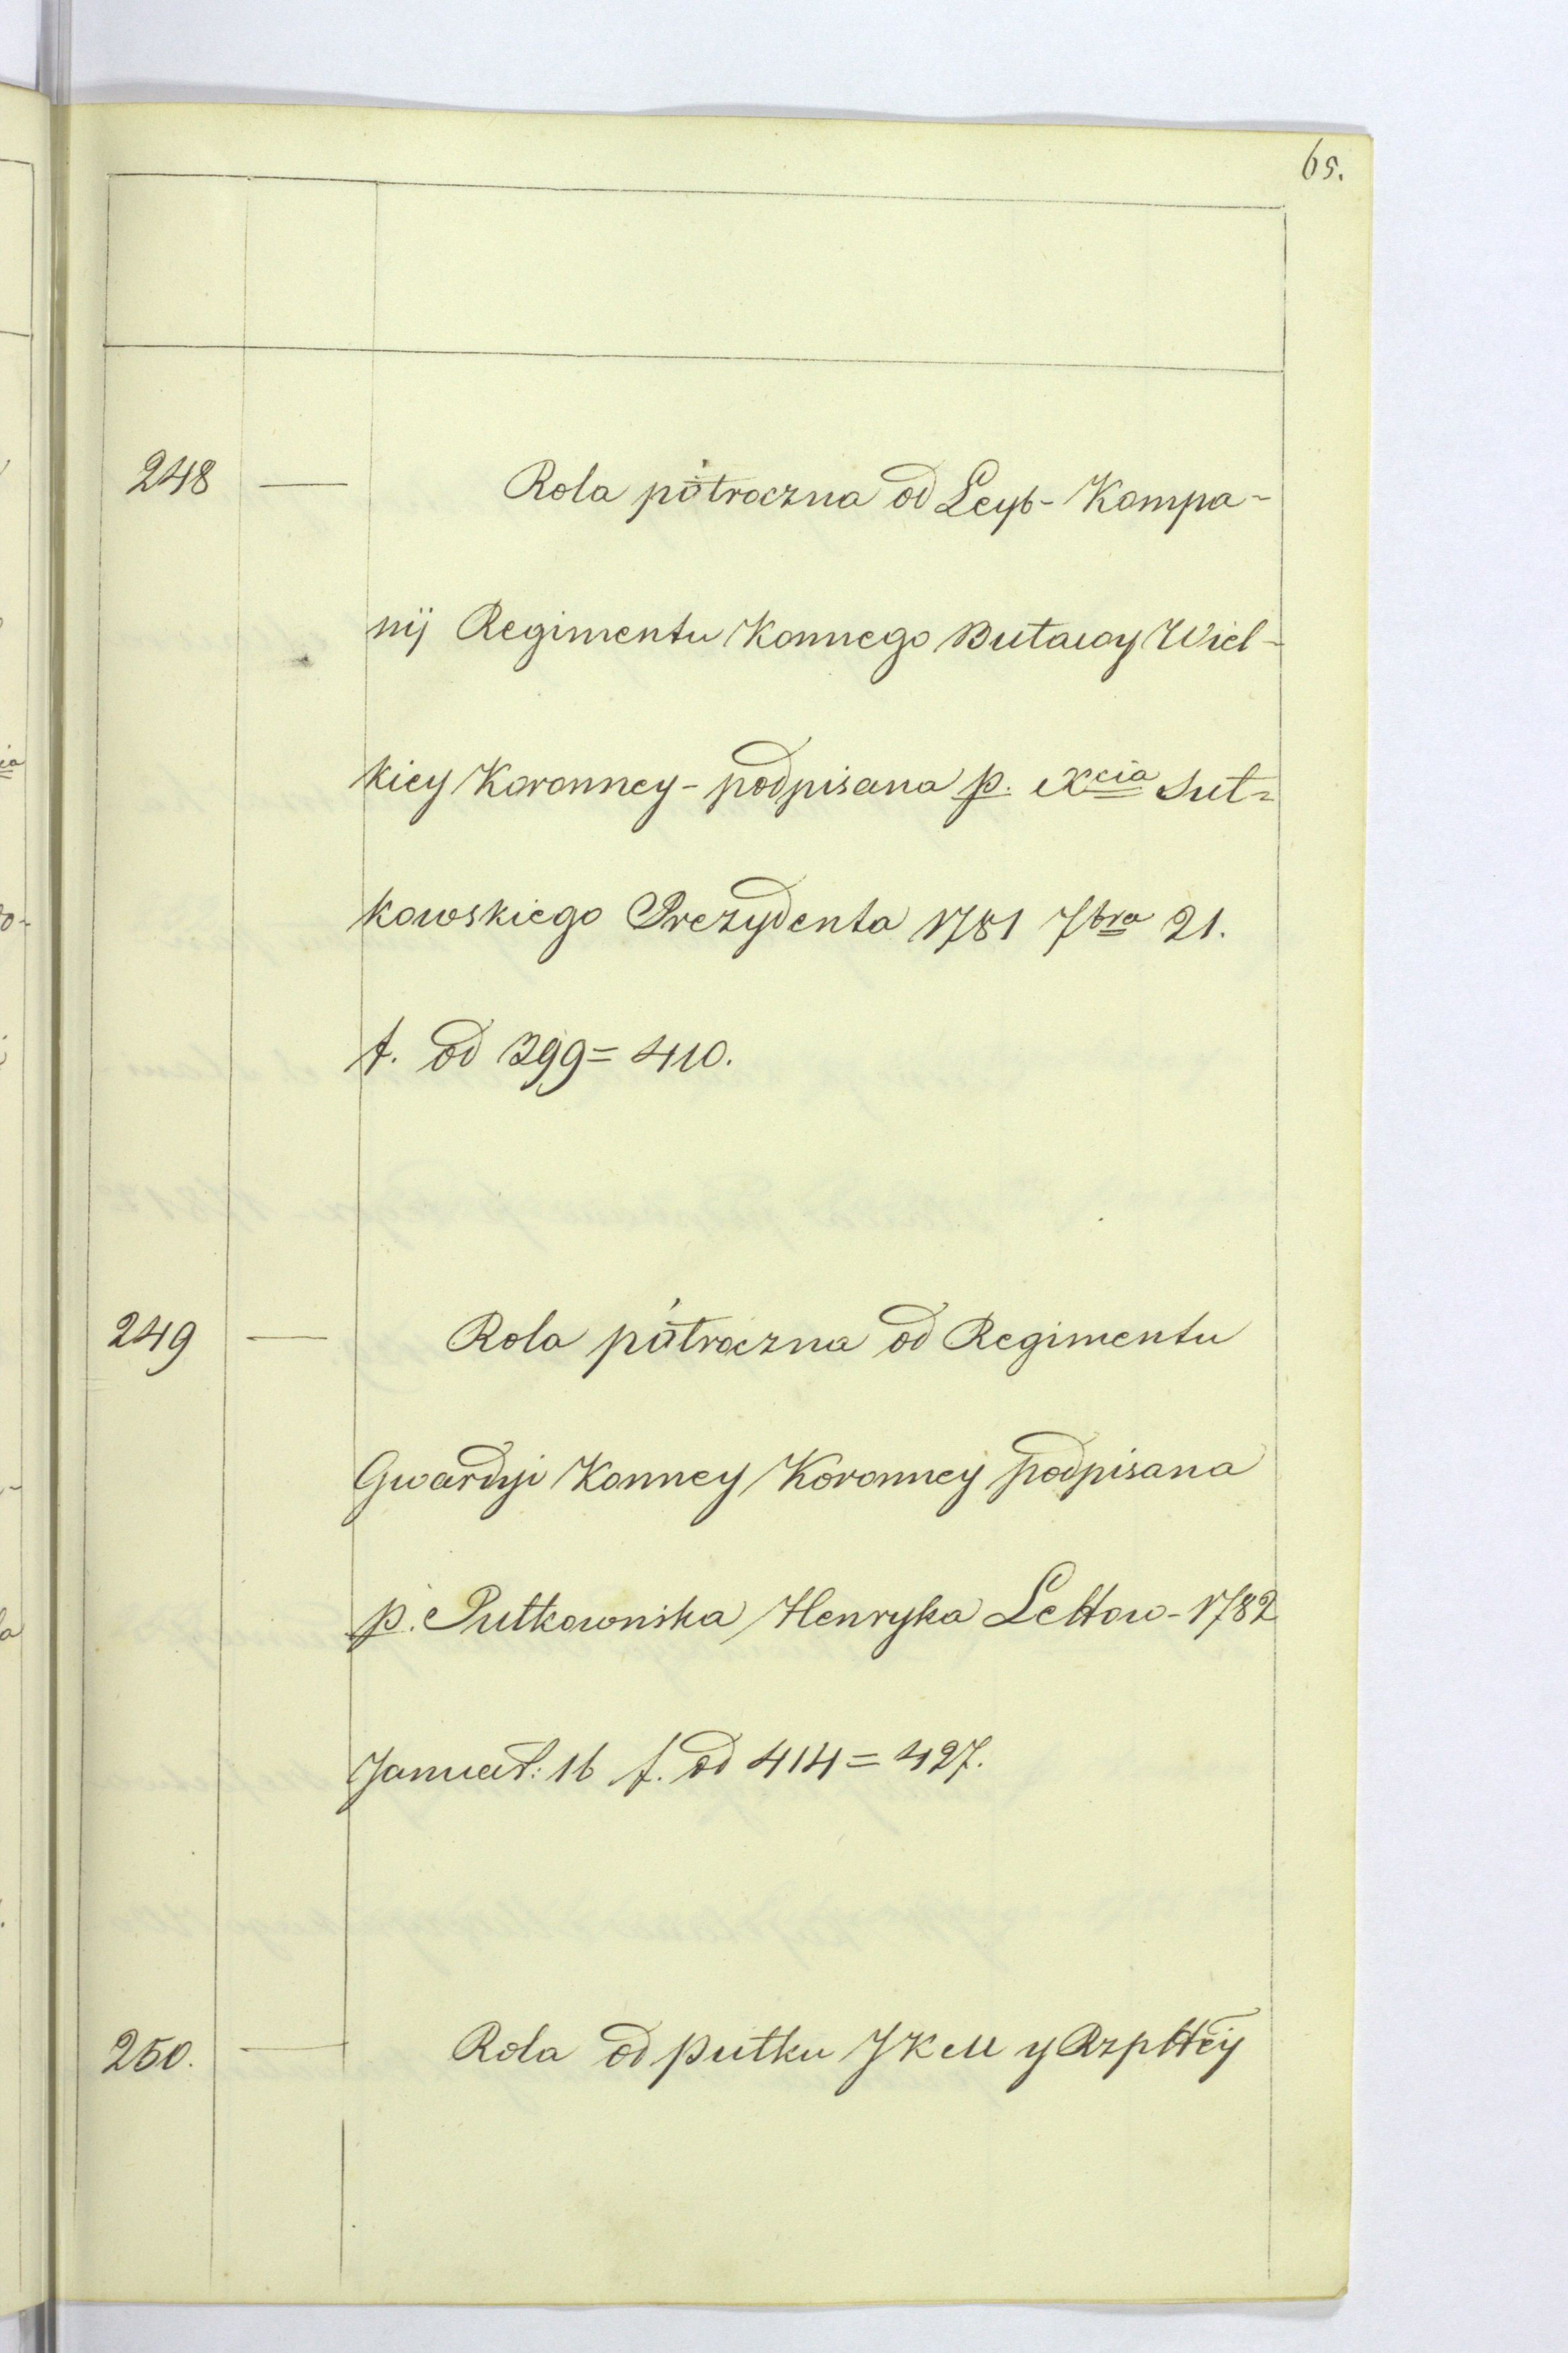 65.
248 — Rola półroczna od Leyb- Kompa-
nij Regimentu Konnego Buławy Wiel-
kiey Koronney - podpisana p. Xcia Suł=
kowskiego Prezydenta 1781 7bra 21.
f. od 399 = 410.
249 — Rola półroczna od Regimentu
Gwardyi Konney Koronney podpisana
p. Pułkownika Henryka Lettow - 1782
Januar: 16 f. od 414 = 427.
250. — Rola od pułku JKM y Rzpltey